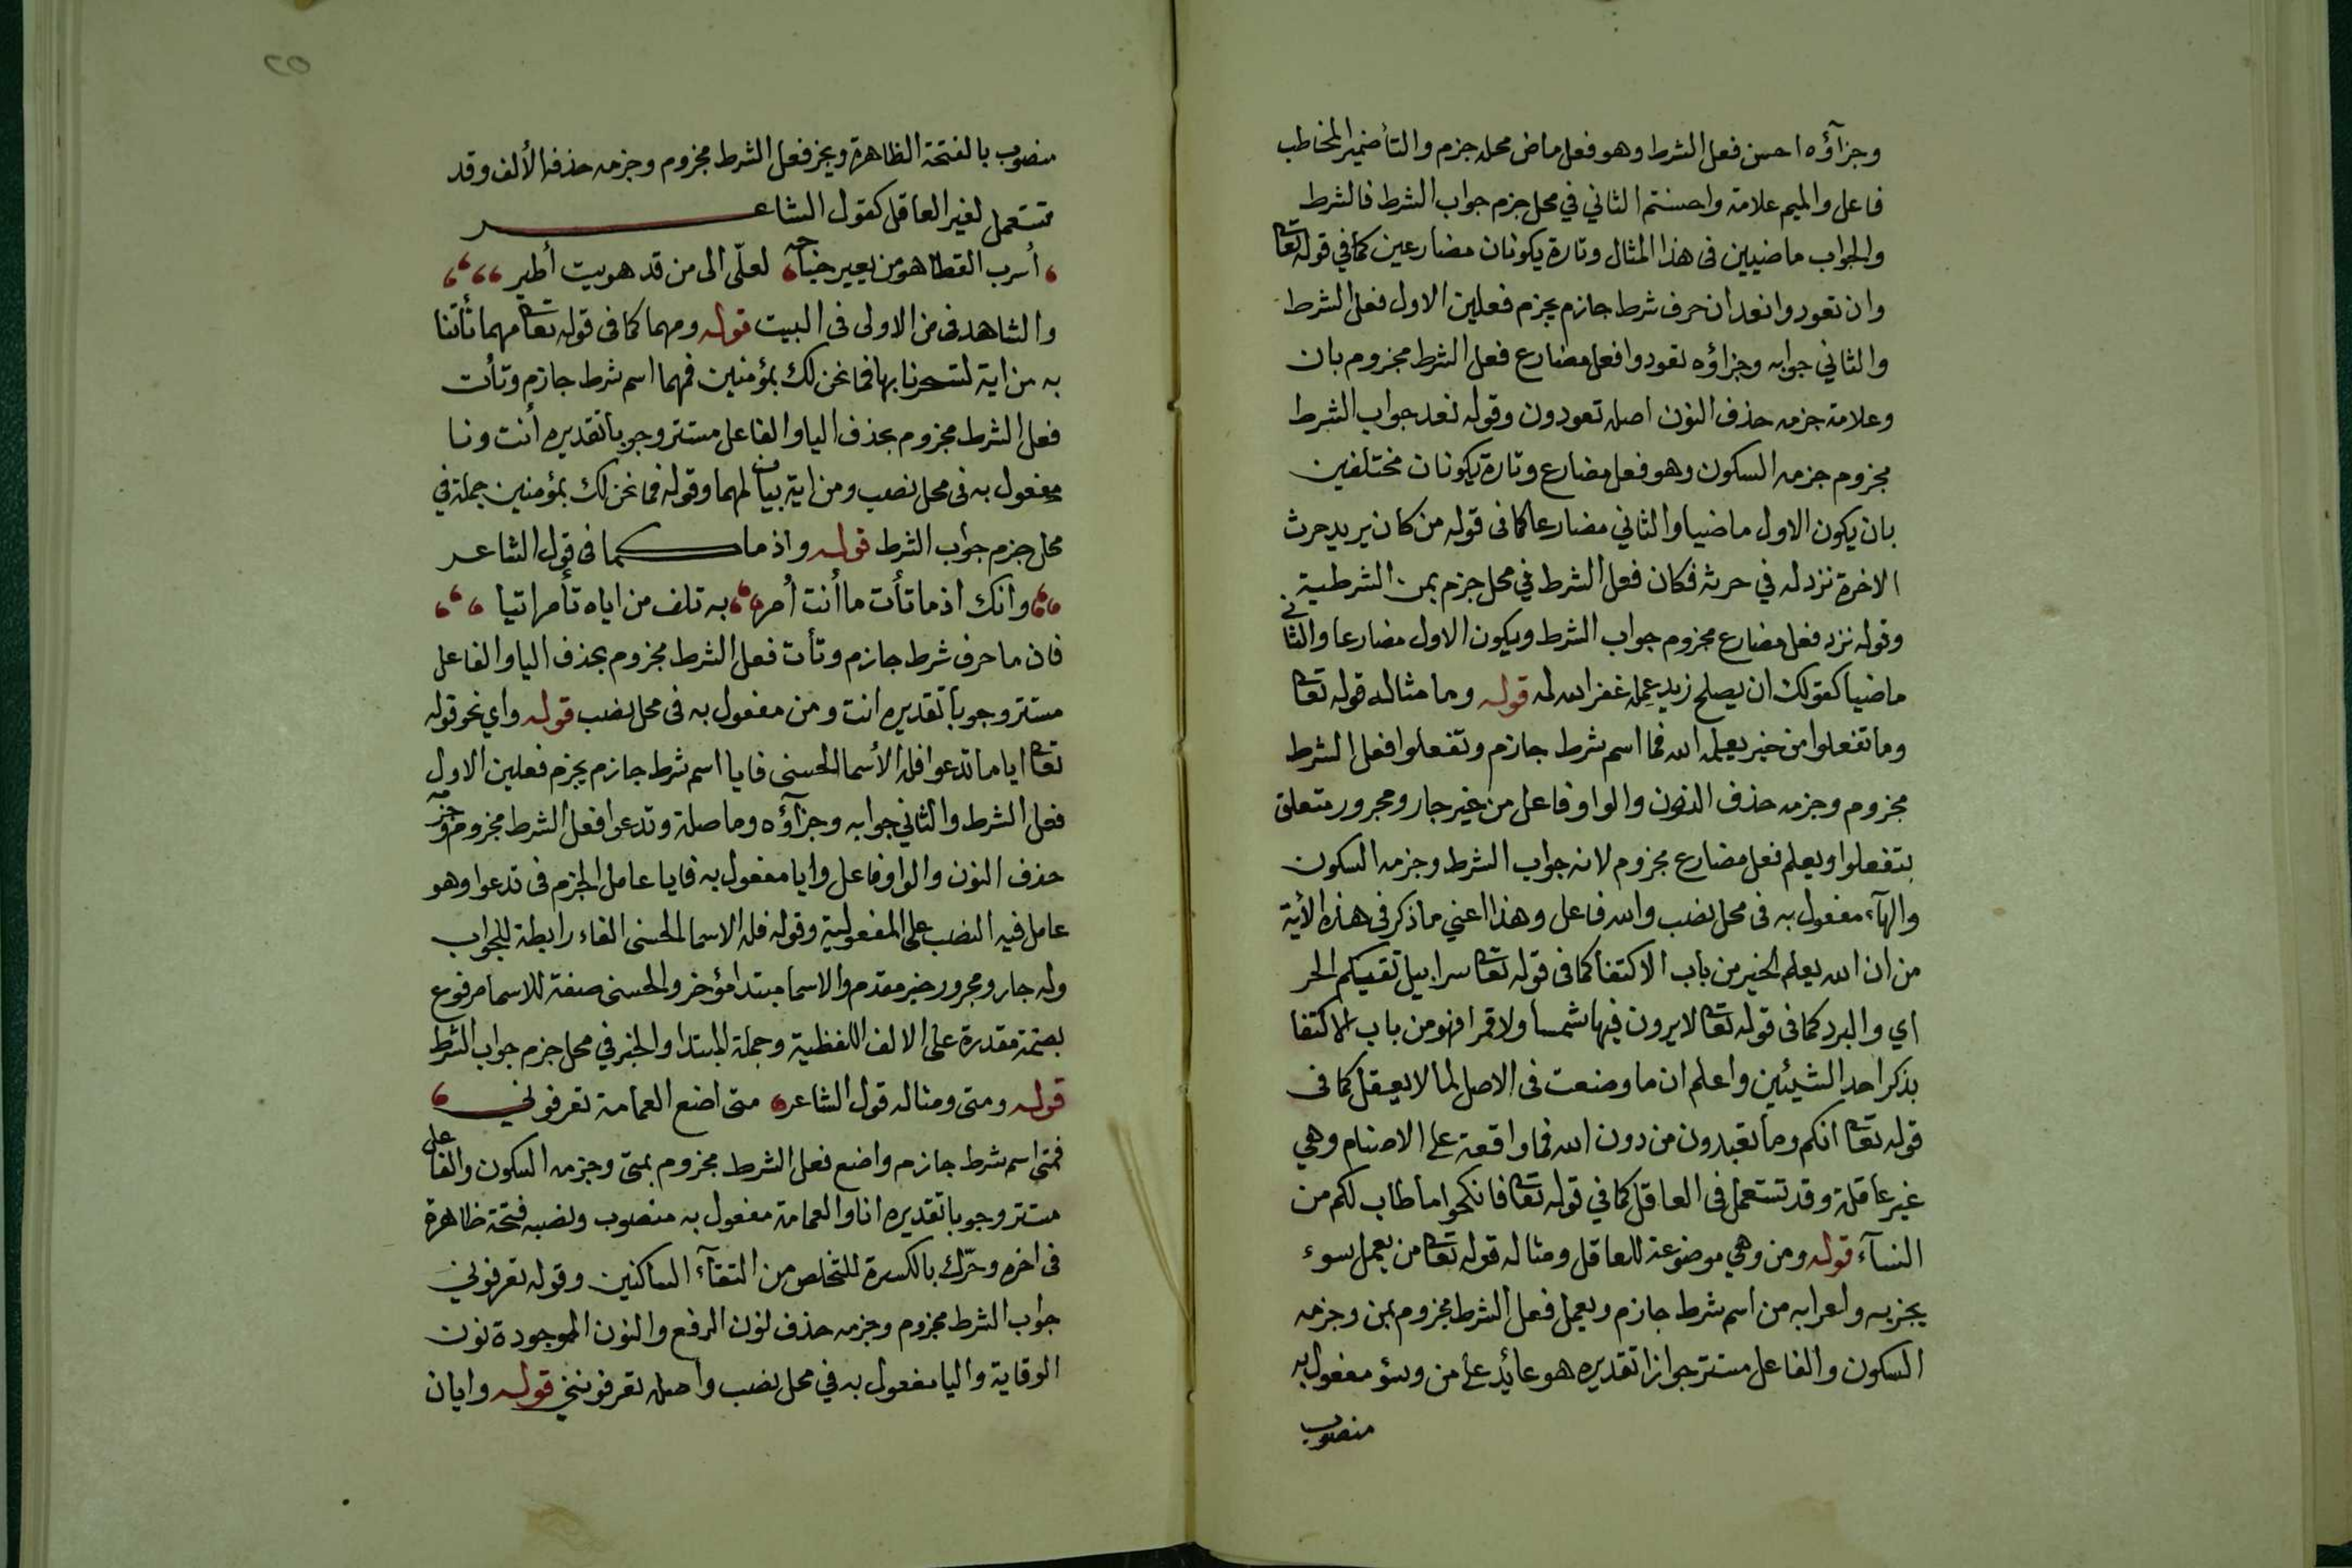 وجزآؤه احسن فعل الشرط وهو فعل ماض محله جزم والتأضمير المخاطب
فاعل والميم علامة واحسنتم الثاني في محل جزم جواب الشرط فالشرط
والجواب ماضيين فى هذا المثال وتارة يكونان مضارعين كما في قوله تعا
وان تعودوا نعد ان حرف شرط جازم يجزم فعلين الاول فعل الشرط
والثاني جوابه وجزاؤه تعودوا فعل مضارع فعل الشرط مجزوم بان
وعلامة جزمه حذف النون اصله تعودون وقوله نعد جواب الشرط
مجزوم جزمه السكون وهو فعل مضارع وتارة يكونان مختلفين
بان يكون الاول ماضيا والثاني مضارعا كما فى قوله من كان يريد حرث
الاخرة نزد له في حرثه فكان فعل الشرط في محل جزم بمن الشرطية
وقوله نزد فعل مضارع مجزوم جواب الشرط ويكون الاول مضارعا والثاني
ماضيا كقولك ان يصلح زيد عمله غفر الله له قوله وما مثاله قوله تعا
وما تفعلوا من خير يعلمه الله فما اسم شرط جازم وتفعلوا فعل الشرط
مجزوم وجزمه حذف النون والواو فاعل من خير جار ومجرور متعلق
بتفعلوا ويعلم فعل مضارع مجزوم لانه جواب الشرط وجزمه السكون
والهآء مفعول به فى محل نصب والله فاعل وهذا اعني ما ذكر فى هذه الأية
من ان الله يعلم الخير من باب الاكتفا كما فى قوله تعا سرابيل تقيكم الحر
اي والبرد كما فى قوله تعا لا يرون فيها شمسا ولا قمرا فهو من باب الاكتفا
بذكر احد الشيئين واعلم ان ما وضعت فى الاصل لما لا يعقل كما فى
قوله تعا انكم وما تعبدون من دون الله فما واقعة على الاصنام وهي
غير عاقلة وقد تستعمل فى العاقل كما في قوله تعا فانكحوا ما طاب لكم من
النسآء قوله ومن وهي موضوعة للعاقل ومثاله قوله تعا من يعمل سوء
يجز به واعرابه من اسم شرط جازم ويعمل فعل الشرط مجزوم بمن وجزمه
السكون والفاعل مستتر جوازا تقديره هو عائد على من وسؤ مفعول به
منصوب
٢٥
منصوب بالفتحة الظاهرة ويجز فعل الشرط مجزوم وجزمه حذف الألف وقد
تستعمل لغير العاقل كقول الشاعر
أسرب القطا هو من يعير جناحه لعلّى الى من قد هويت أطير
والشاهد فى من الاولى فى البيت قوله ومهما كما فى قوله تعا مهما تأتنا
به من اية لتسحرنا بها فما نحن لك بمؤمنين فمهما اسم شرط جازم وتأت
فعل الشرط مجزوم بحذف اليا والفاعل مستتر وجوبا تقديره أنت ونا
مفعول به فى محل نصب ومن اية بيان لمهما وقوله فما نحن لك بمؤمنين جملة في
محل جزم جواب الشرط قوله واذما كما فى قول الشاعر
وانك اذما تأت ما أنت أمر به تلف من اياه تأمر اتيا
فان ما حرف شرط جازم وتأت فعل الشرط مجزوم بحذف اليا والفاعل
مستتر وجوبا تقديره انت ومن مفعول به فى محل نصب قوله واي نحو قوله
تعا ايا ما تدعوا فله الأسما الحسنى فايا اسم شرط جازم يجزم فعلين الاول
فعل الشرط والثاني جوابه وجزآؤه وما صلة وتدعوا فعل الشرط مجزوم وجزمه
حذف النون والواو فاعل وايا مفعول به فايا عامل الجزم فى تدعوا وهو
عامل فيه النصب على المفعولية وقوله فله الاسما الحسنى الفاء رابطة للجواب
وله جار ومجرور خبر مقدم والاسما مبتدا مؤخر والحسنى صفة للاسما مرفوع
بضمة مقدرة على الالف اللفظية وجملة المبتدا والخبر في محل جزم جواب الشرط
قوله ومتى ومثاله قول الشاعر متى اضع العمامة تعرفوني
فمتى اسم شرط جازم واضع فعل الشرط مجزوم بمتى وجزمه السكون والفاعل
مستتر وجوبا تقديره انا والعمامة مفعول به منصوب ونصبه فتحة ظاهرة
فى اخره وحرّك بالكسرة للتخلص من التقآء الساكنين وقوله تعرفوني
جواب الشرط مجزوم وجزمه حذف نون الرفع والنون الموجودة نون
الوقاية واليا مفعول به في محل نصب واصله تعرفونني قوله وايان